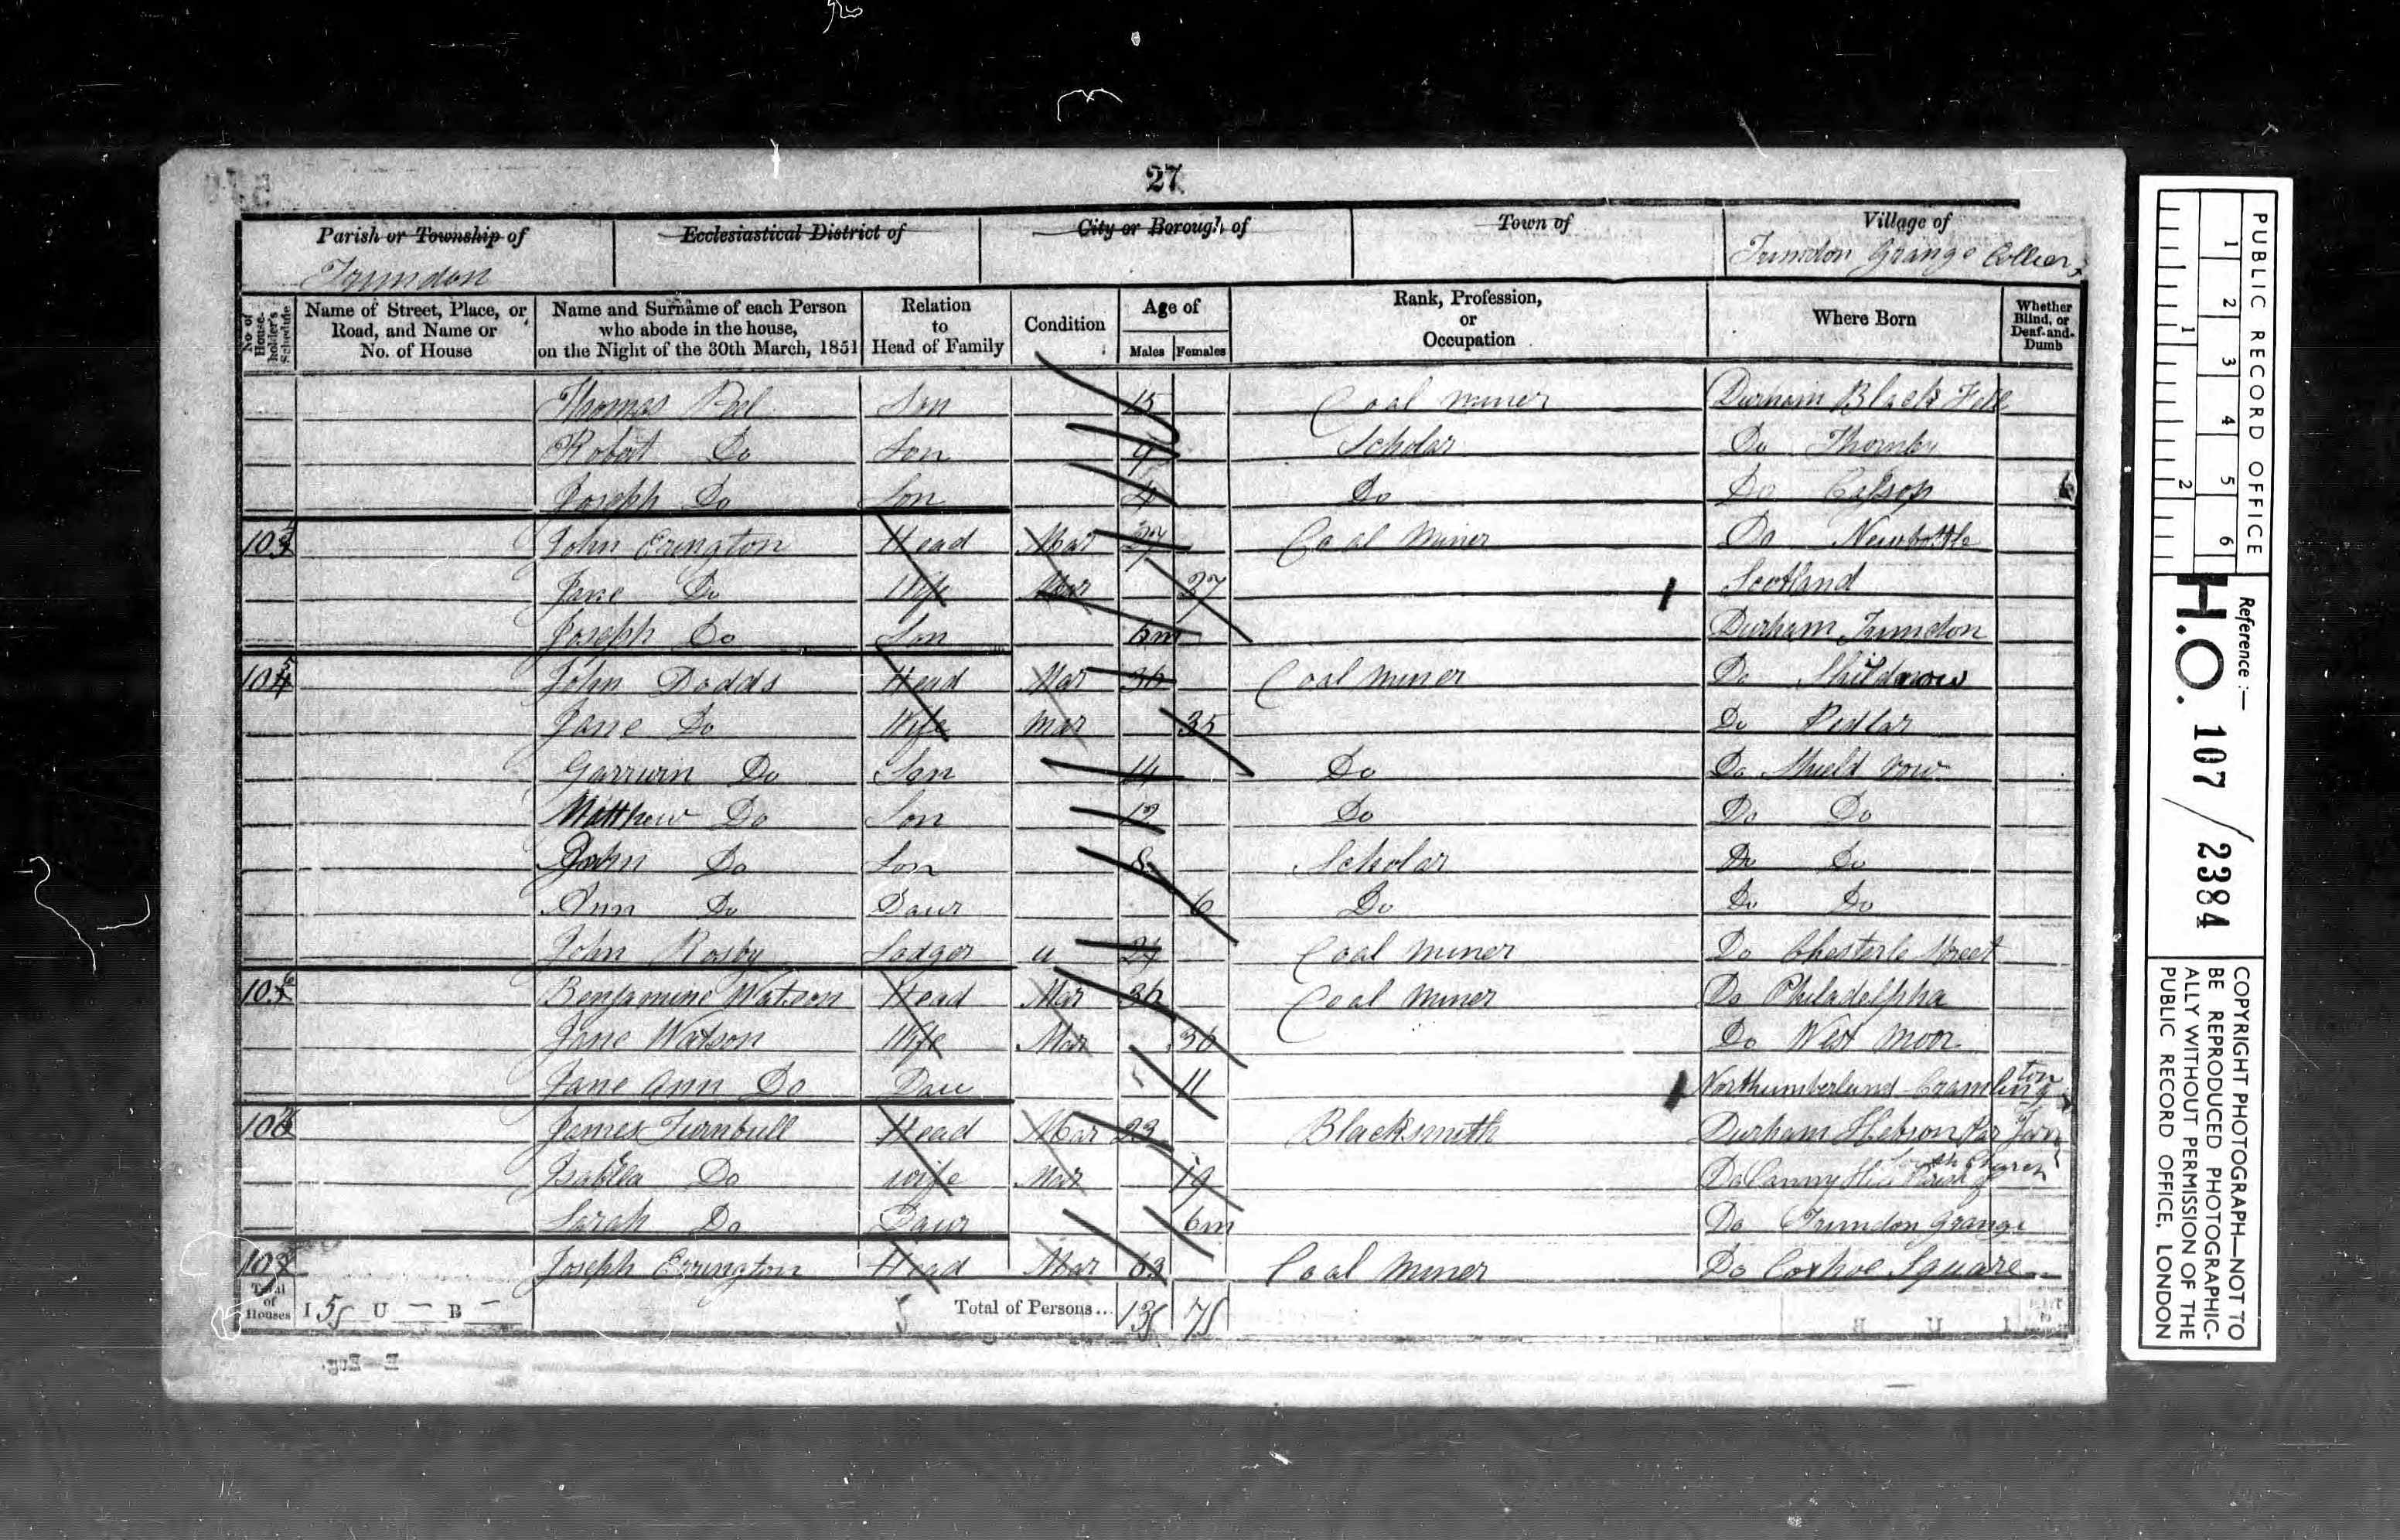 27
Parish or Township of
Trimdon
Ecclesiastical District of
City or Borough of
Town of
Village of
Trimdon Grange Colliery
No. of House-holder's Schedule
Name of Street, Place, or Road, and Name or No. of House
Name and Surname of each Person who abode in the house, on the Night of the 30th March, 1851
Relation to Head of Family
Condition
Age of
Males Females
Rank, Profession, or Occupation
Where Born
Whether Blind, or Deaf-and-Dumb
Thomas Son 15 Coal Miner Durham Black Fell
Robert Do Son 9 Scholar Do Thornley
Joseph Do Son 4 Do Do Cassop
John Erington Head Mar 27 Coal Miner Do Newbottle
Jane Do Wife Mar 27 Scotland
Joseph Do Son 6m Durham Trimdon
John Dodds Head Mar 36 Coal Miner Do
Jane Do Wife Mar 35 Do Pedlar
Garrwin Do Son 14 Do Do Shield row
Matthew Do Son 12 Do Do Do
John Do Son 8 Scholar Do Do
Ann Do Daur 6 Do Do Do
John Rosby Lodger u Coal Miner Do Chesterle Street
Benjamine Watson Head Mar 36 Coal Miner Do Philadelpha
Jane Watson Wife Mar 36 Do West Moor
Jane Ann Do Dau 11 Northumberland Cramlington
James Turnbull Head Mar 23 Blacksmith Durham
Isabella Do wife Mar 19 Do
Sarah Do Daur 6m Do Trimdon Grange
108 Joseph Errington Head Mar Coal Miner Do Coxhoe Square
Total of Houses I 5 U - B - 5 Total of Persons... 13 7
PUBLIC RECORD OFFICE
1 2 3 4 5 6
1 2
Reference :-
H.O. 107 / 2384
COPYRIGHT PHOTOGRAPH—NOT TO
BE REPRODUCED PHOTOGRAPHIC-
ALLY WITHOUT PERMISSION OF THE
PUBLIC RECORD OFFICE, LONDON